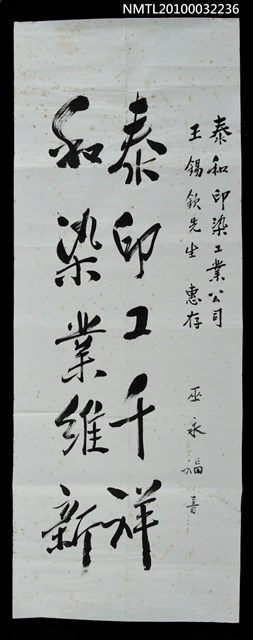 NMTL20100032236
泰和印染工業公司
王錫欽先生 惠存
巫永福書
泰印工千祥
和染業維新